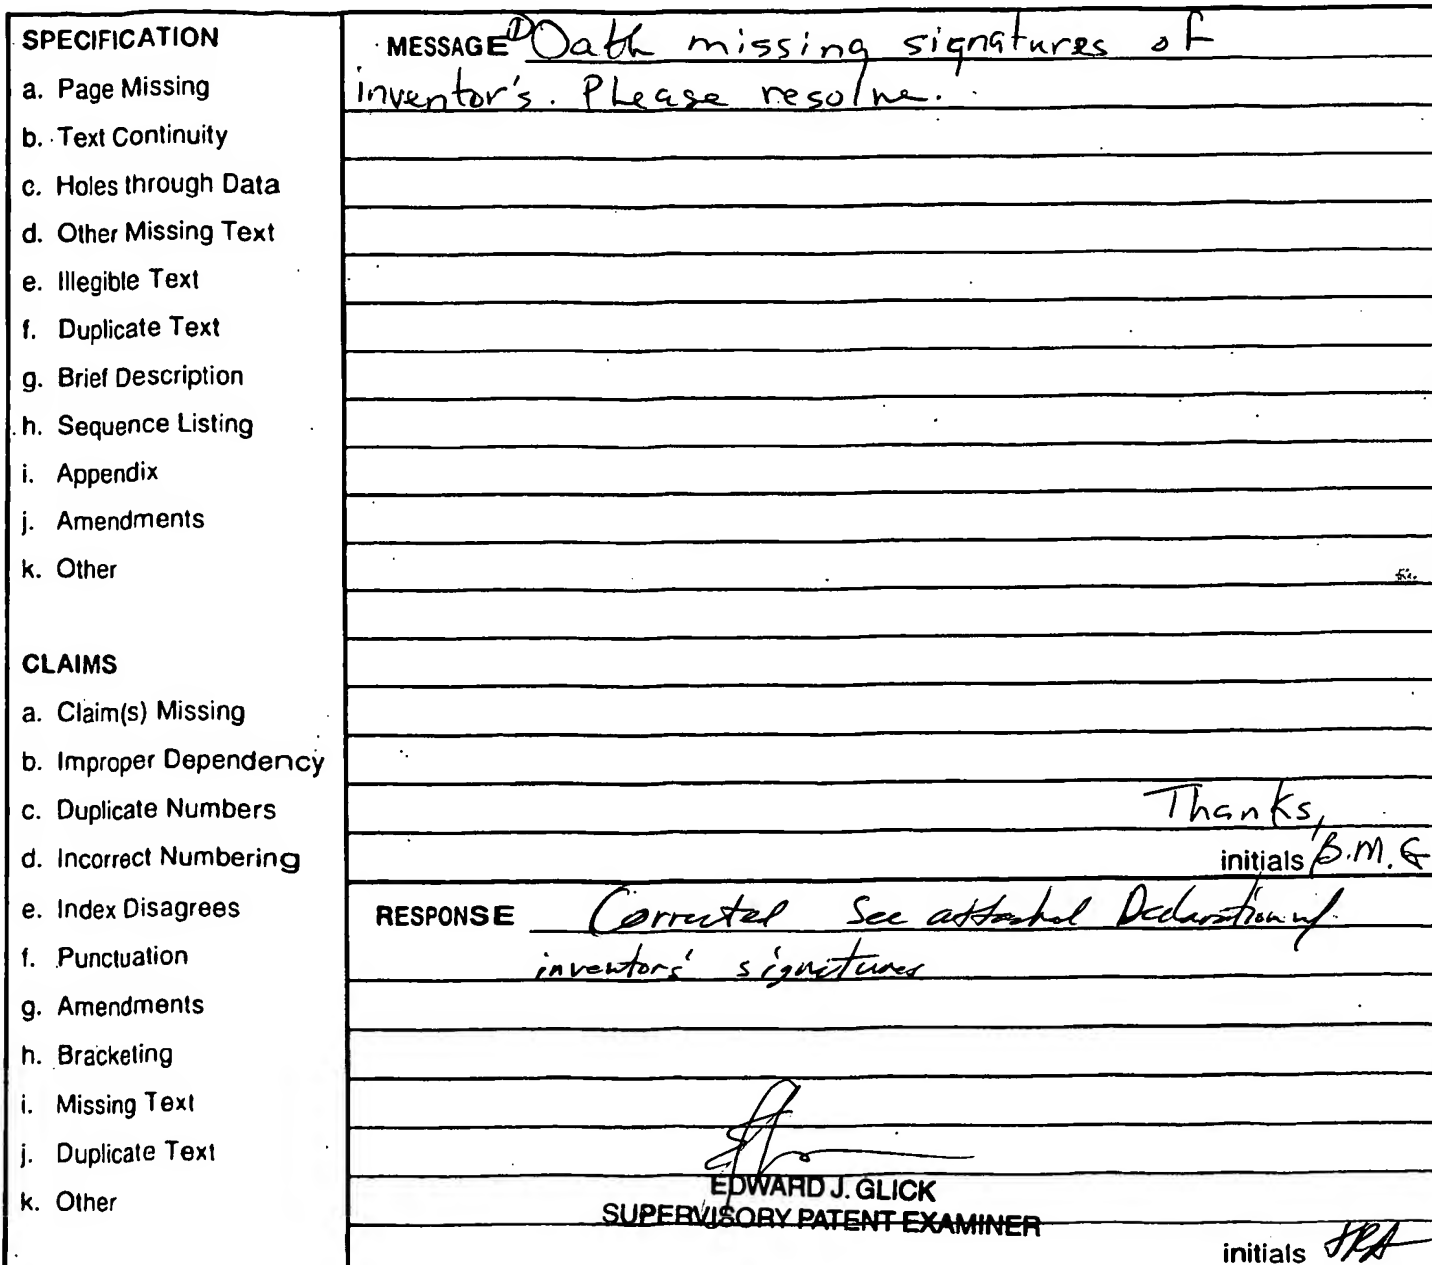 SPECIFICATION
a. Page Missing
b. Text Continuity
c. Holes through Data
d. Other Missing Text
e. Illegible Text
f. Duplicate Text
g. Brief Description
h. Sequence Listing
i. Appendix
j. Amendments
k. Other
CLAIMS
a. Claim(s) Missing
b. Improper Dependency
c. Duplicate Numbers
d. Incorrect Numbering
e. Index Disagrees
f. Punctuation
g. Amendments
h. Bracketing
i. Missing Text
j. Duplicate Text
k. Other
MESSAGE ① Oath missing signatures of
inventor's. Please resolve.
Thanks,
initials B.M.G
RESPONSE Corrected See attached Declaration w/
inventors' signatures
EDWARD J. GLICK
SUPERVISORY PATENT EXAMINER
initials